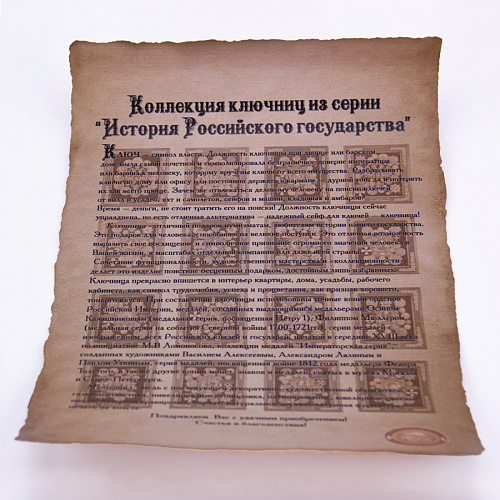 Коллекция ключниц из серии
"История Российского государства"
Ключ – символ власти. Должность ключницы при дворце или барском
доме была самой почетной и символизировала безграничное доверие императора
или барина к человеку, которому вручены ключи от всего имущества. Разбрасывать
ключи по дому или офису или постоянно держать в кармане – дурной тон да и потерять
их так всего проще. Зачем же отвлекаться деловому человеку на поиски ключей
от вилл и усадеб, яхт и самолетов, сейфов и машин, кладовых и амбаров?
Время – деньги, не стоит тратить его на поиски! Должность ключницы сейчас
упразднена, но есть отличная альтернатива – надежный сейф для ключей – ключница!
Ключница – отличный подарок нумизматам, любителям истории нашего государства.
Это подарок для человека, способного на великие поступки. Это отличная возможность
выразить свое восхищение и символичное признание огромного значения человека в
Вашей жизни, в масштабах отдельной компании или даже всей страны.
Сочетание функциональности, художественного мастерства и коллекционности
делает это изделие поистине бесценным подарком, достойным лишь избранных.
Ключница прекрасно впишется в интерьер квартиры, дома, усадьбы, рабочего
кабинета, как символ трудолюбия, успеха и процветания, как признак хорошего,
тонкого вкуса. При составлении ключницы использованы точные копии орденов
Российской Империи, медалей, созданных выдающимися медальерами Осипом
Калашниковым (медальная серия, посвященная Петру I), Филиппом Мюллером
(медальная серия на события Северной войны 1700-1721гг.), серии медалей с
изображением всех Российских князей и государей, начатой в середине XVIII века
по инициативе М.В. Ломоносова, коллекции медалей "Императорская серия",
созданных художниками Василием Алексеевым, Александром Лялиным и
Павлом Уткиным, серии медалей, посвященная войне 1812 года медальера Федора
Толстого, а также другие копии монет, знаков и медалей, снятых в музеях Москвы
и Санкт-Петербурга.
Поздравляем Вас с удачным приобретением!
Счастья и благоденствия!